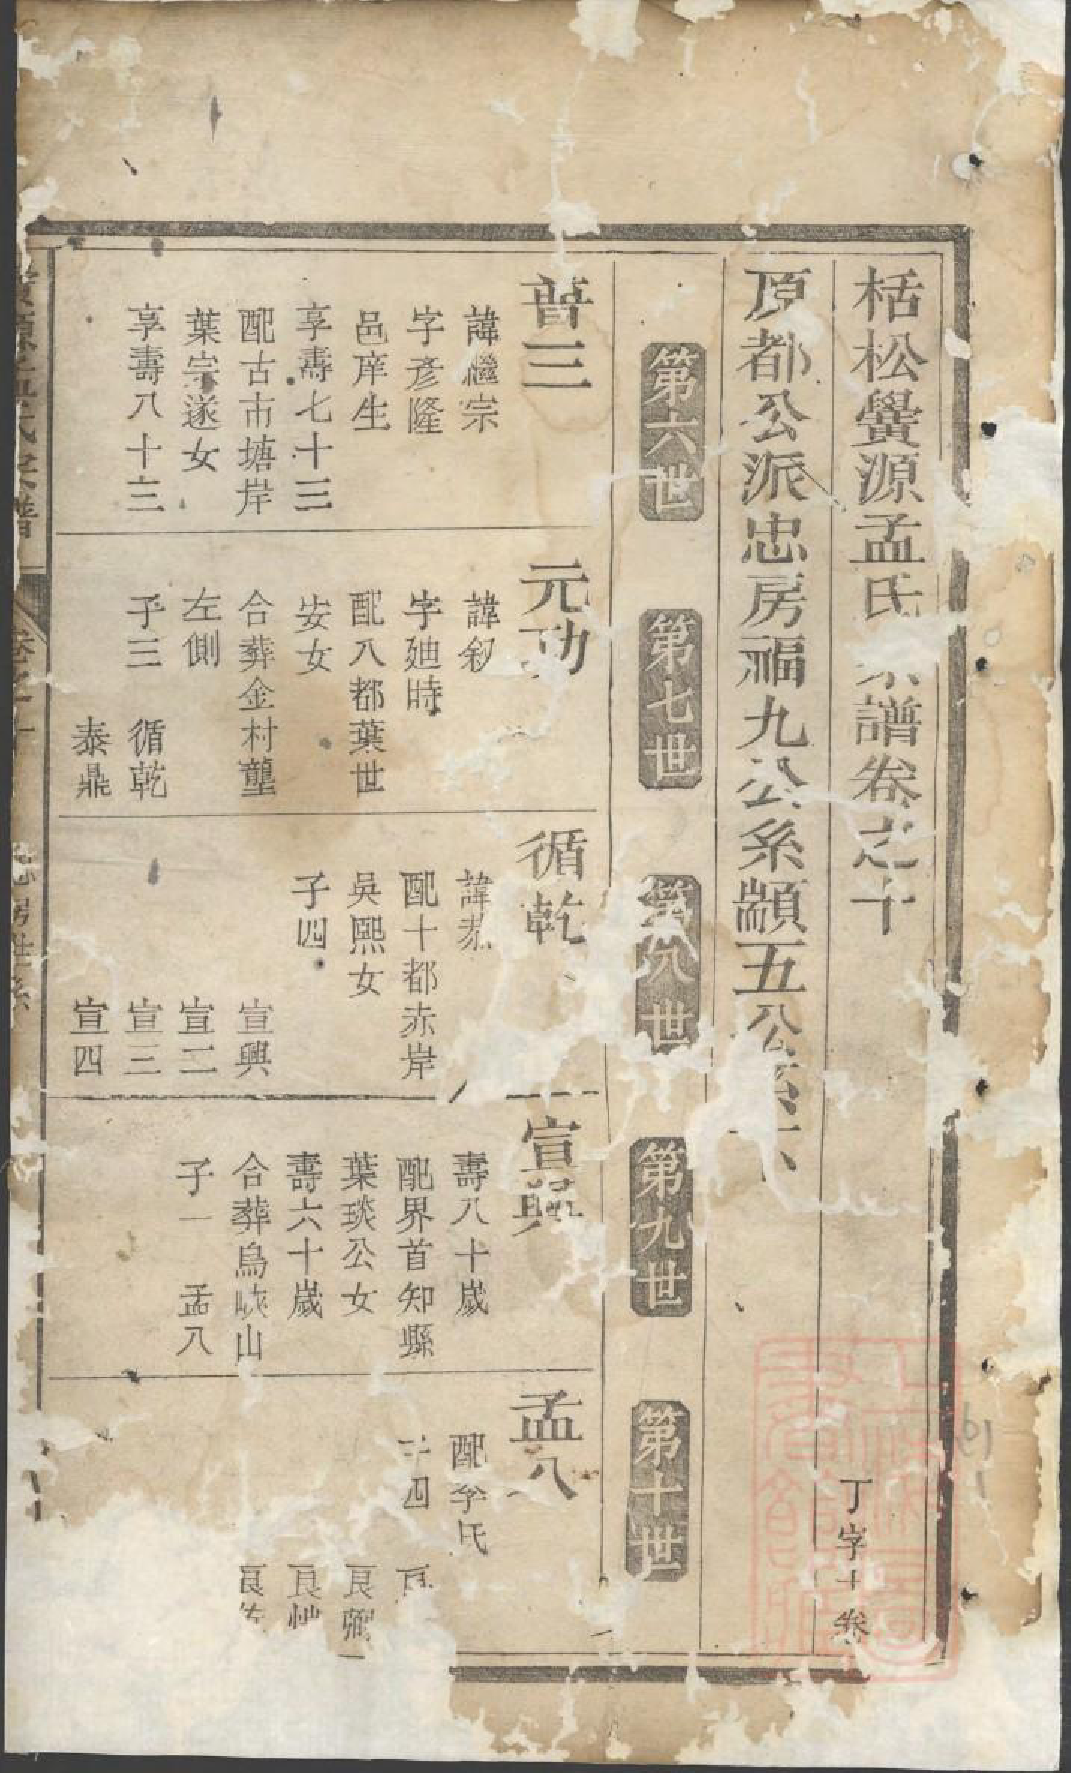 栝松黌源孟氏宗譜卷之十
丁字十卷
原都公派忠房福九公系顓五公系下
第六世
第七世
第八世
第九世
第十世
普三
諱繼宗
字彥隆
邑庠生
享壽七十三
配古市塘岸
葉宗遂女
享壽八十三
元功
諱釖
字廸時
配八都葉世
安女
合葬金村壟
左側
子三 循乾
泰鼎
循乾
諱恭
配十都赤岸
吳熙女
子四
宣興
宣二
宣三
宣四
宣興
壽八十歲
配界首知縣
葉琰公女
壽六十歲
合葬烏峽山
子一 孟八
孟八
配李氏
子四
良
良
良
良佐
黌源孟氏宗譜
卷之十
忠房世系